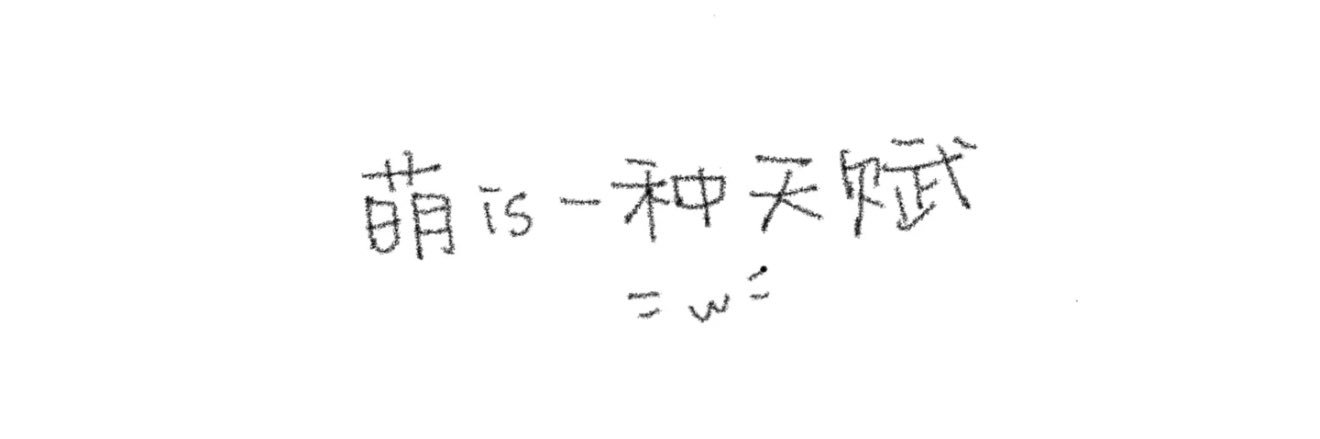 萌is一种天赋
=w=